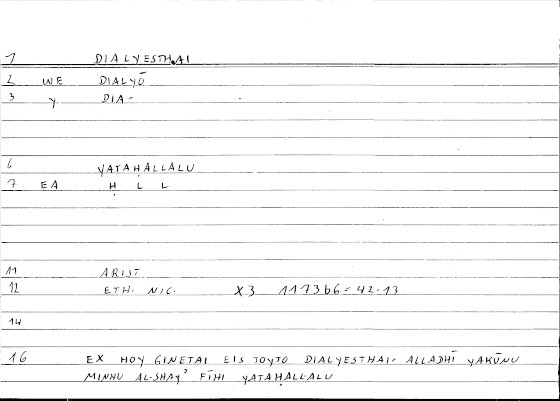 1 DIALYESTHAI
2 WE DIALYŌ
3 Y DIA-
6 YATAḤALLALU
7 EA Ḥ L L
11 ARIST.
12 ETH. NIC. X3 1173b6 = 42.13
14
16 EX HOY GINETAI EIS TOYTO DIALYESTHAI- ALLADHĪ YAKŪNU
MINHU AL-SHAYʾ FĪHI YATAḤALLALU